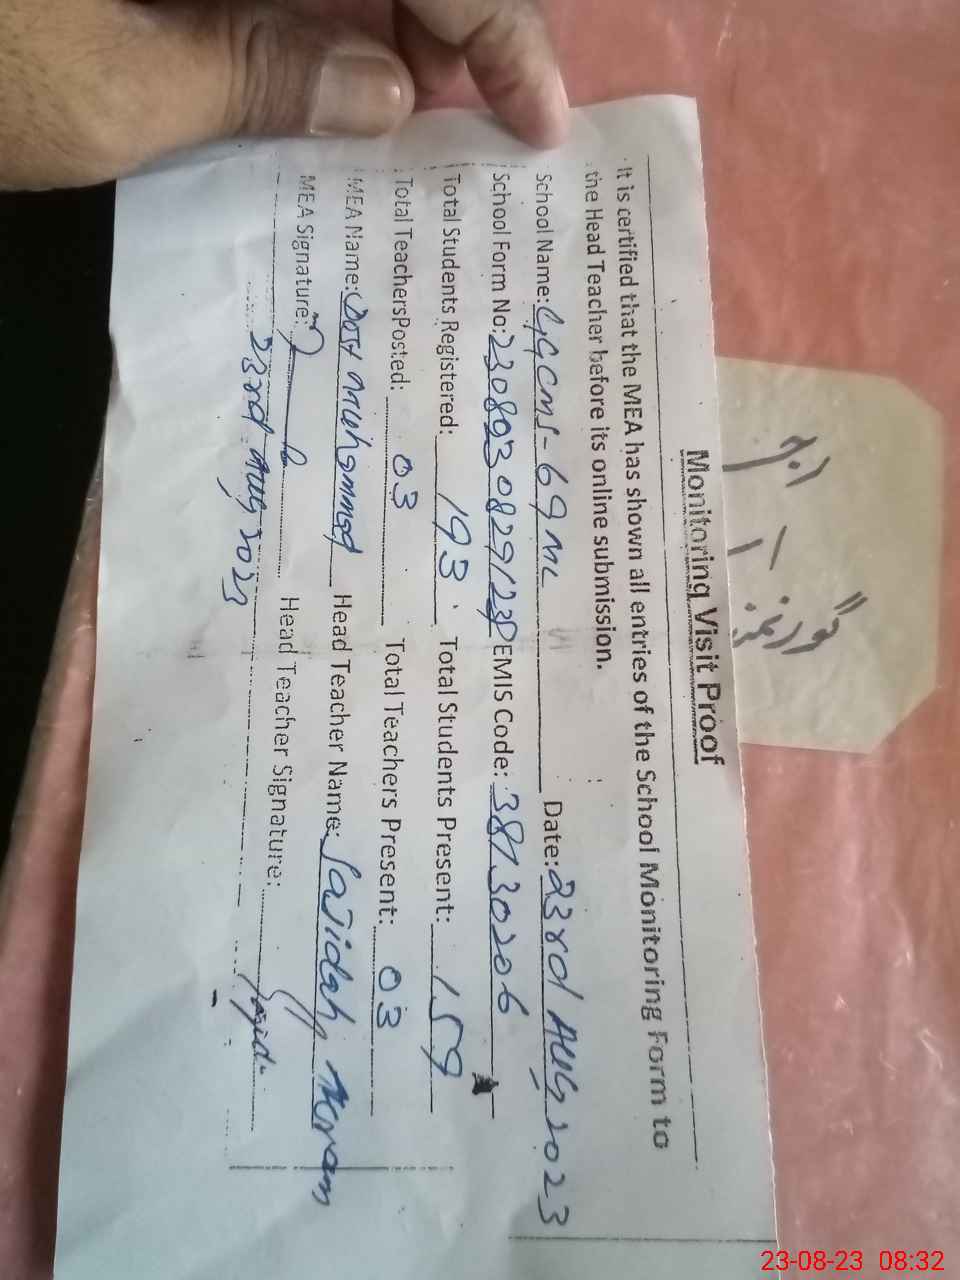 Monitoring Visit Proof
It is certified that the MEA has shown all entries of the School Monitoring Form to
the Head Teacher before its online submission.
School Name: GGCMS-69 ML Date: 23rd Aug 2023
School Form No: EMIS Code: 38130206
Total Students Registered: 193 Total Students Present: 159
Total TeachersPosted: 03 Total Teachers Present: 03
MEA Name: Dost Muhammad Head Teacher Name: Sajidah Akram
MEA Signature: Head Teacher Signature: Sajida
23rd Aug 2023
23-08-23 08:32